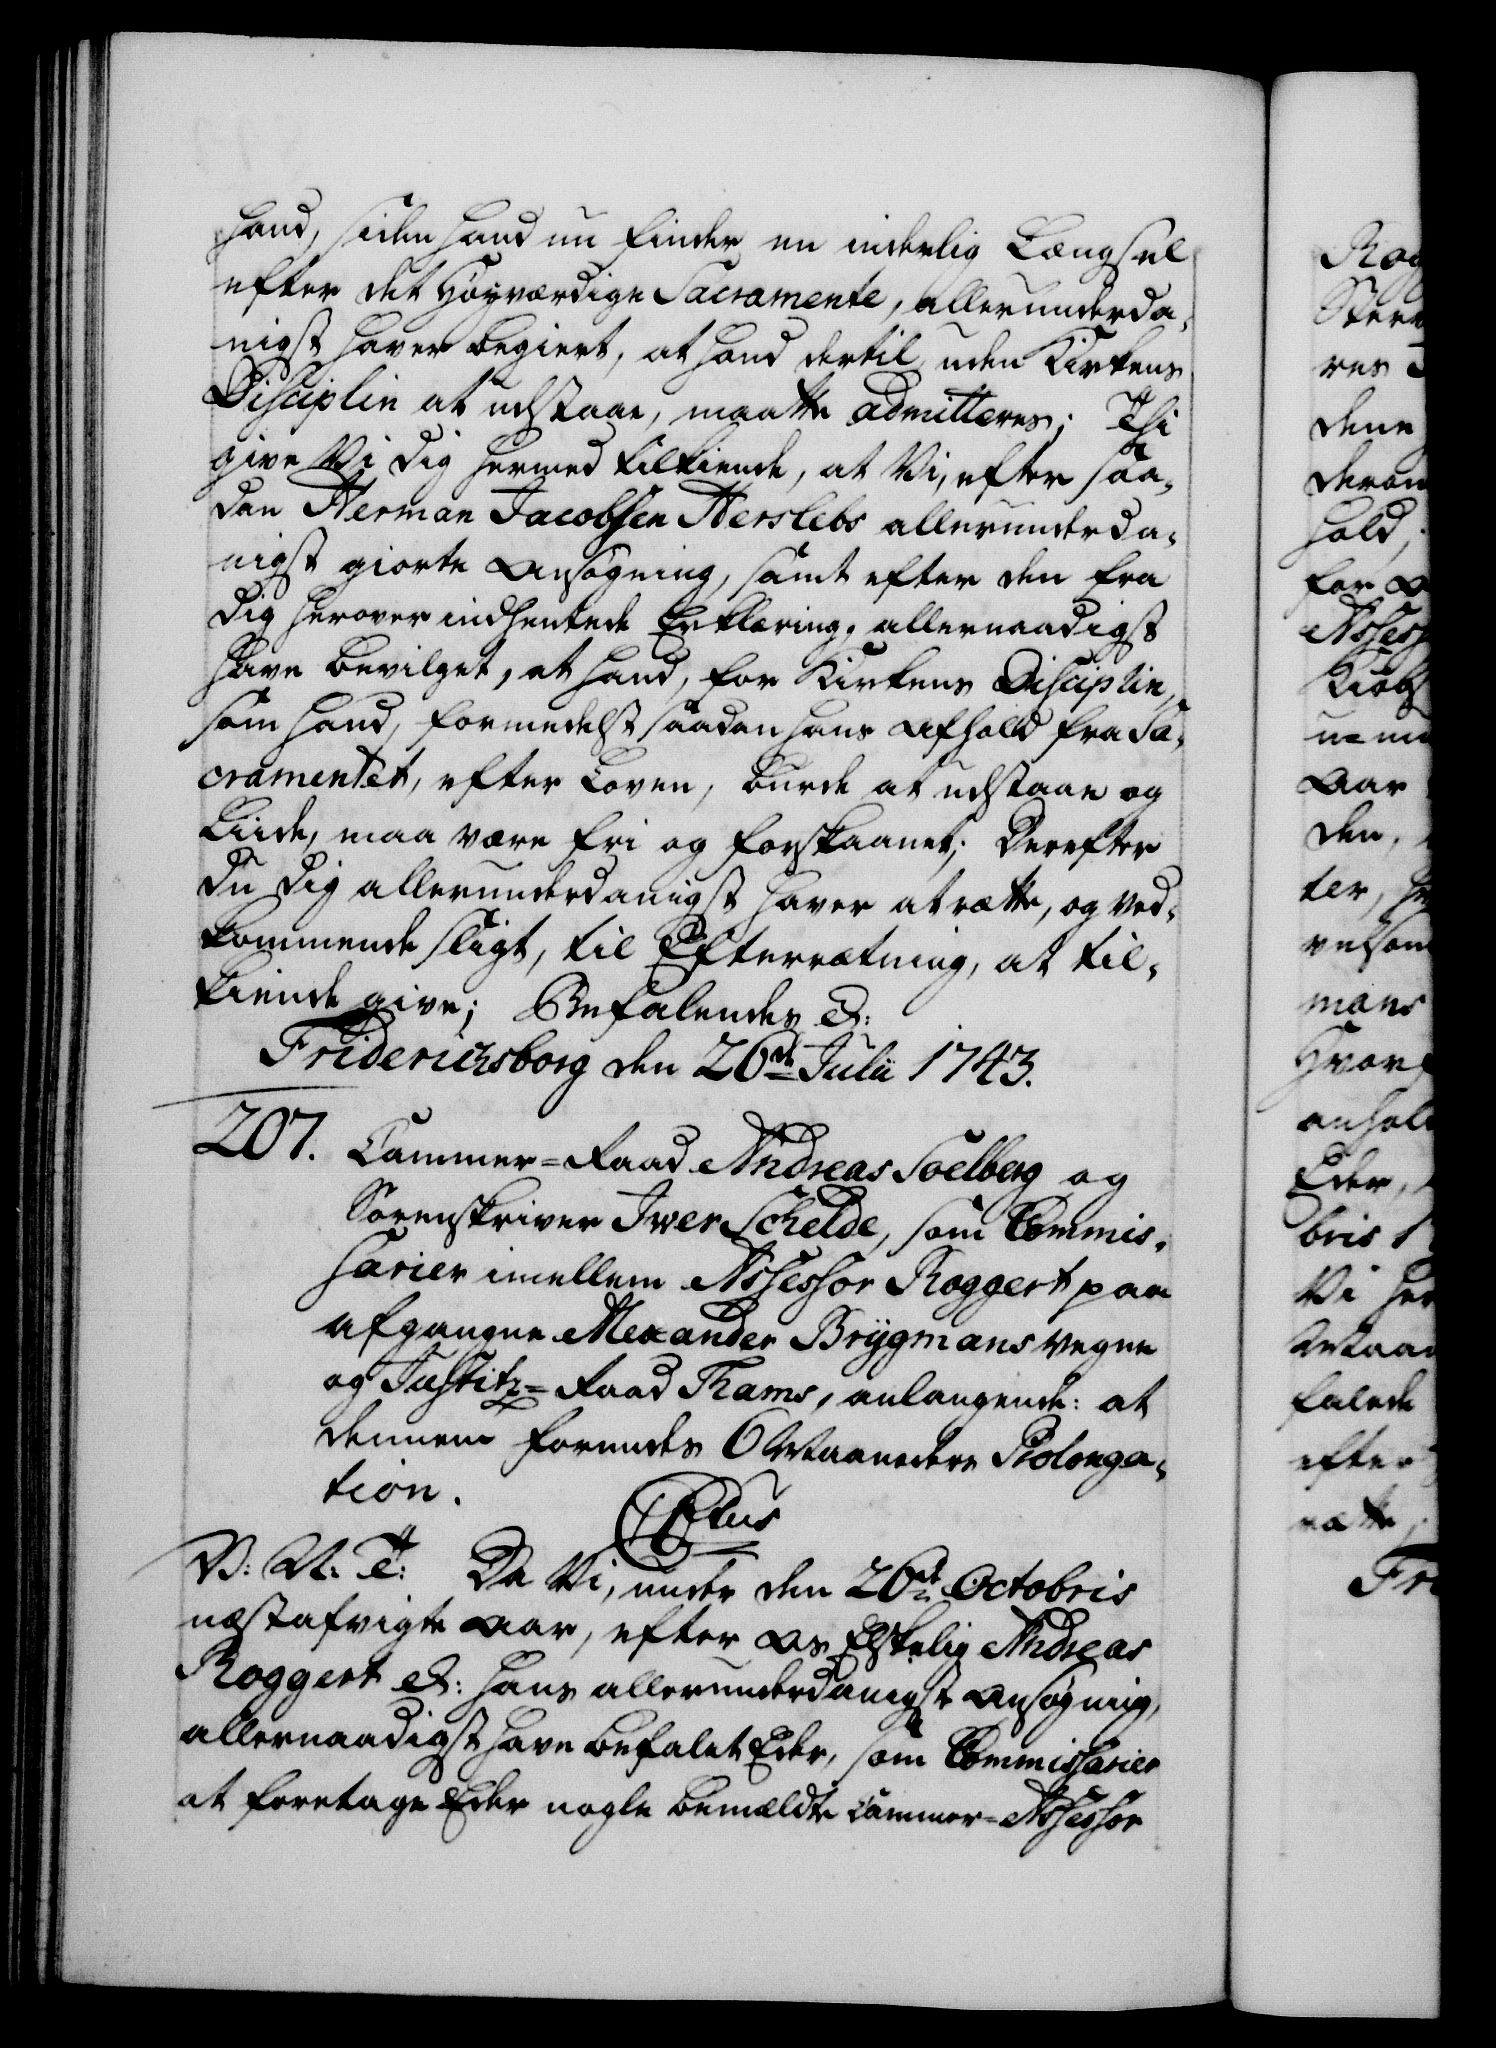 hand, siden hand nu finder en inderlig Længsel
efter det Høyværdige Sacramente, allerunderda-
nigst haver begiert, at hand dertil uden Kirkens
Disciplin at udstaae, maatte admitteres; Thi
give Vi dig hermed tilkiende, at Vi, efter saa-
dan Herman Jacobsen Herslebs allerunderda-
nigst giorte Ansøgning, samt efter den fra
dig herover indhentede Erklæring, allernaadigst
have bevilget, at hand, for Kirkens Disciplin,
som hand, formedelst saadan hans Afhold fra Sa-
cramentet, efter Loven, burde at udstaae og
Liide, maa være fri og forskaanet; Derefter
du dig allerunderdanigst haver at rette, og ved-
kommende sligt, til Efterretning, at til-
kiende give; Befalendes &:
Friderichsborg den 26de Julii 1743.
207. Cammer=Raad Andreas Soelberg og
Sorenskriver Iver Schelde, som Commis-
sarier imellem Assessor Roggert paa
afgangne Alexander Brÿgmans vegne
og Justitz=Raad Thams, anlangende: at
dennem forundes 6 Maaneders Prolonga-
tion.
Ctus
V: A: T: Da Vi, under den 26de Octobris
næstafvigte Aar, efter Os Elskelig Andreas
Roggert &: hans allerunderdanigste Ansøgning,
allernaadigst have befalet Eder, som Commissarier
at foretage Eder nogle bemældte Cammer=Assessor
Rog
res
dene
hold,
for
Assess
Aar
den,
ter,
mans
Hvor
anhol
Eder,
bris
Vi her
Maan
falede
efter
rette,
Fri